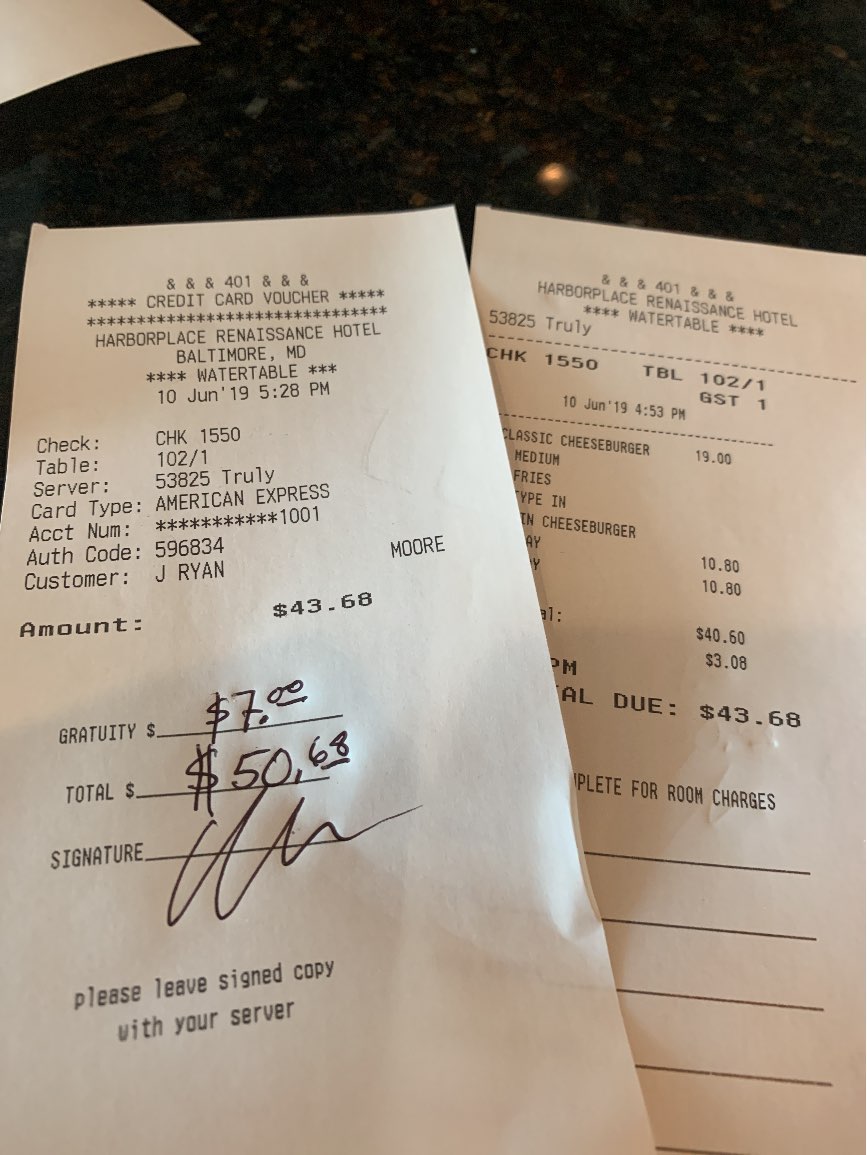 & & & 401 & & &
***** CREDIT CARD VOUCHER *****
*******************************
HARBORPLACE RENAISSANCE HOTEL
BALTIMORE, MD
**** WATERTABLE ***
10 Jun'19 5:28 PM
Check: CHK 1550
Table: 102/1
Server: 53825 Truly
Card Type: AMERICAN EXPRESS
Acct Num: ***********1001
Auth Code: 596834
Customer: J RYAN MOORE
Amount: $43.68
GRATUITY $ $7.00
TOTAL $ $50.68
SIGNATURE
please leave signed copy
with your server
& & & 401 & & &
HARBORPLACE RENAISSANCE HOTEL
**** WATERTABLE ****
53825 Truly
CHK 1550 TBL 102/1
GST 1
10 Jun'19 4:53 PM
CLASSIC CHEESEBURGER 19.00
MEDIUM
FRIES
YPE IN
IN CHEESEBURGER
AY
Y 10.80
10.80
al: $40.60
PM $3.08
AL DUE: $43.68
PLETE FOR ROOM CHARGES